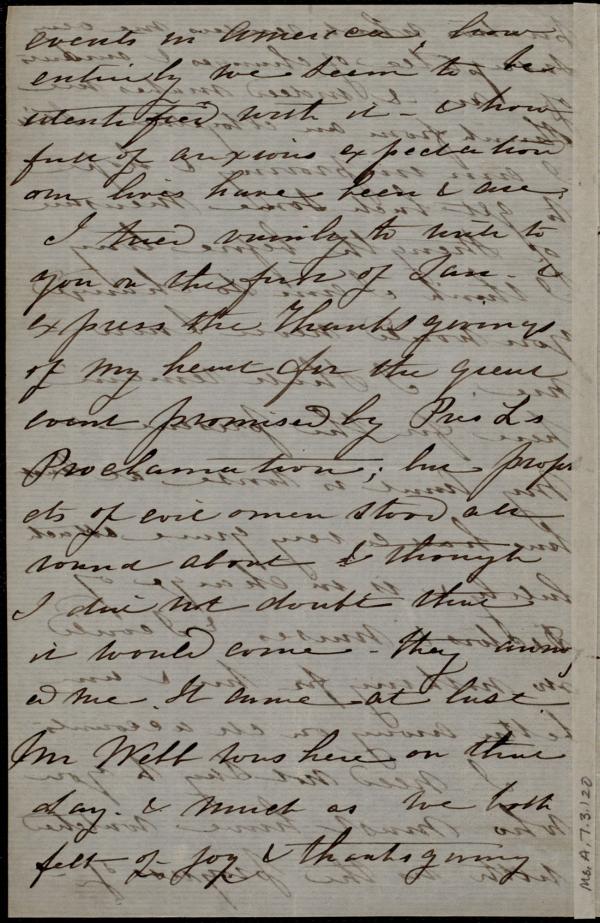 events in America, how
entirely we seem to be
identified with it - & how
full of anxious expectation
our lives have been & are.
I tried vainly to write to
you on the first of Jan. &
express the Thanksgivings
of my heart for the great
event promised by Pres L's
Proclamation; but prop
ets of evil omen stood all
round about & though
I did not doubt that
it would come - they annoy
ed me. It came at last
Mr Webb was here on that
day. & much as we both
felt of joy & thanksgiving
Ms. A. 7. 3. 120